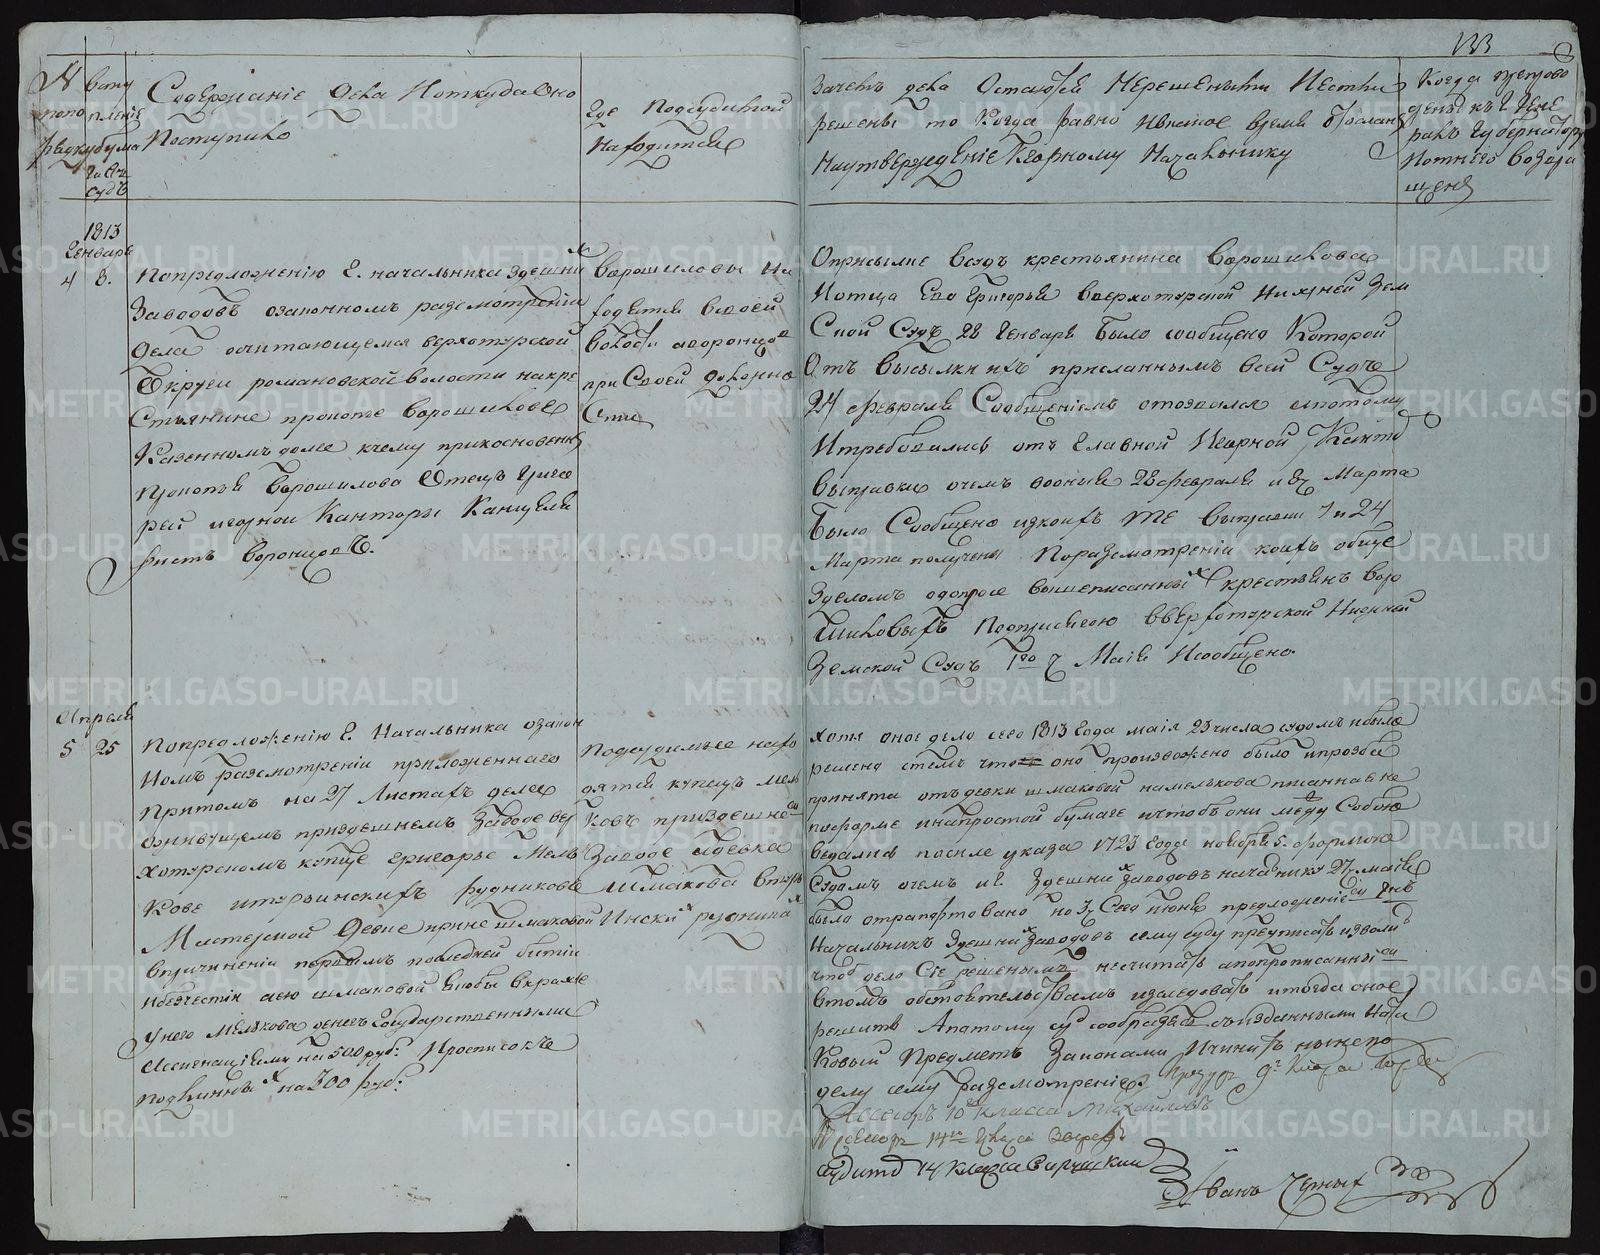 133
№
попо
рядку
вступ
пленіе
бума
га въ
судъ
Содержаніе дела и откуда оно
Поступило
где Подсудимой
находится
Зачемъ дела Остаются Нерешеными Иестли
решены то Когда равно ивкакое время
Наутвержденіе Горному Начальнику
Когда препрово
дены къ Г. Гене
ралъ Губернатору
Потомъ возвра
щены
1813
Генваря
4 8.
Попредложенію Г. начальника здешнихъ
Заводовъ озаконномъ разсмотреніи
Дела очитающуемся верхотурской
Округи романовской волости на кре
стьянине прокопье Ворошилове
Казенномъ долге кчему прикосновенны
Прокопья Ворошилова Отецъ Григо
рей игорной Канторы Канцеля
ристъ Воронцовъ.
Ворошиловы На
ходятся всвоей
Волости аворонцовъ
при Своей должно
сти
Оприсылке Всудъ крестьянина Ворошилова
Иотца Его Григорья вверхотурской Нижней Зем
Ской Судъ 28 Генваря было сообщено Которой
Отъ высылки ихъ присланнымъ Всей Судъ
27 февраля Сообщеніемъ отозвался апотому
Итребовались отъ Главной Игорной Канто
Выправки очемъ вооныя 28 февраля и Марта
Было Сообщено изкоихъ те выправки 7 и 24
Марта получены Поразсмотреніи коихъ обще
Зделомъ одопросе вышеписанныхъ крестьянъ Воро
Шиловыхъ Подпиською Вверхотурской Нижней
Земской Судъ 1го Маія Исообщено.
Апреля
5 25
Попредложенію Г. Начальника озакон
Номъ разсмотреніи приложеннаго
Притомъ на 27 Листахъ дела
оживущемъ приздешнемъ Заводе вер
хотурскомъ купце григорье Мель
кове итурьинскихъ рудниковъ
Мастерской Девке ирине шмаковой
Впричиненіи первымъ последней битіи
Ибезчестія аею шмаковой Якобы вкраже
Унего Мелькова денегъ Государственными
Ассигнаціями на 500 руб: Иросписокъ
подлинныхъ на 300 руб:
Подсудимые нахо
дятся купецъ мель
ковъ приздешнемъ
Заводе адевка
Шмакова втурь
Инскихъ рудникахъ
хотя оное дело сего 1813 Года маія 23 числа судомъ ибыло
решено стемъ что оно произвожено было ипрозба
принята отъ девки шмаковой намелькова писанна не
поформе инапростой бумаге ичтобъ они между Собою
ведались после указа 1723 Года ноября 5. оформою
Судомъ очемъ и Г. Здешнихъ Заводовъ начальнику 27 маія
было отрапортовано но 3. Сего июня предложеніемъ
Начальникъ Здешнихъ заводовъ сему суду предписать изволилъ
чтоб дело Сіе решенымъ несчитать апопрописаннымъ
Втомъ обстоятельствамъ изследовать итогда оное
решить Апатому судъ сообразясь съизданными Нати
Ковый Предметъ Законами Ичинитъ ныне по
делу сему разсмотреніе
Ассесоръ 10го класса Михайловъ
Ассесоръ 14го Класса Зверевъ
аудиторъ 14 Класса
Иванъ Черныхъ
METRIKI.GASO-URAL.RU